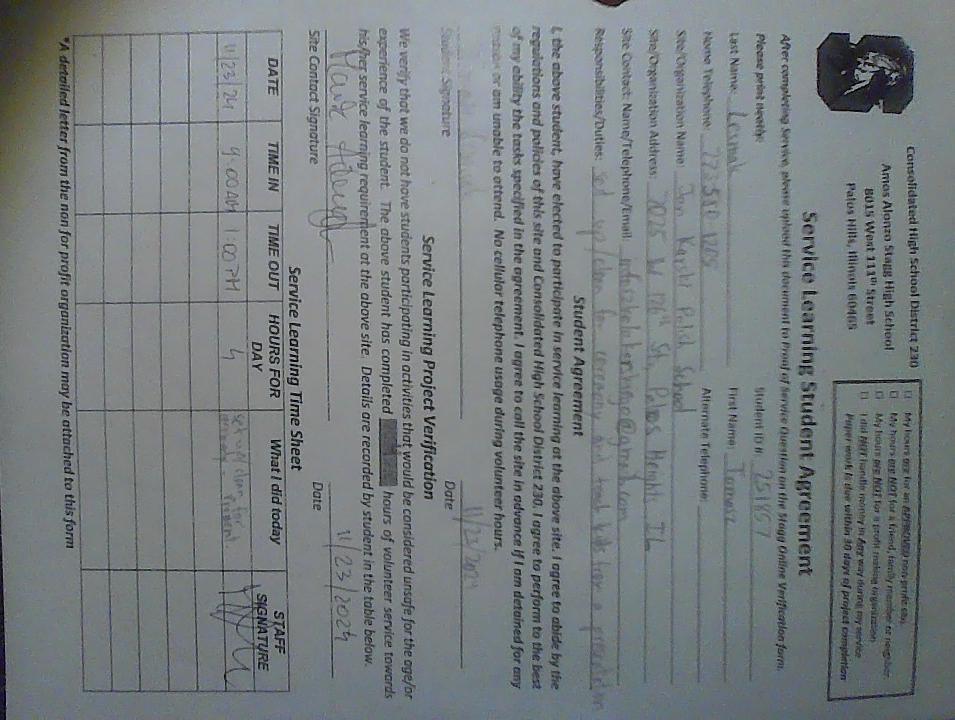 Consolidated High School District 230
Amos Alonzo Stagg High School
8015 West 111th Street
Palos Hills, Illinois 60465
My hours are for an APPROVED non-profit
My hours are NOT for a friend, family member or neighbor
My hours are NOT for a profit making organization
I did NOT handle money in Any way during my service
Paper work is due within 30 days of project completion
Service Learning Student Agreement
After completing Service, please upload this document to Proof of Service Question on the Stagg Online Verification form.
Please print neatly: Student ID #: 251857
Last Name: Lesniak First Name: Tomasz
Home Telephone: Alternate Telephone:
Site/Organization Name Jan Karski Polish School
Site/Organization Address: 7025 W 126th St, Palos Heights IL
Site Contact: Name/Telephone/Email:
Responsibilities/Duties: set up/clean for ceremony and
Student Agreement
I, the above student, have elected to participate in service learning at the above site. I agree to abide by the
regulations and policies of this site and Consolidated High School District 230. I agree to perform to the best
of my ability the tasks specified in the agreement. I agree to call the site in advance if I am detained for any
reason or am unable to attend. No cellular telephone usage during volunteer hours.
11/23/2024
Student Signature Date
Service Learning Project Verification
We verify that we do not have students participating in activities that would be considered unsafe for the age/or
experience of the student. The above student has completed hours of volunteer service towards
his/her service learning requirement at the above site. Details are recorded by student in the table below.
11/23/2024
Site Contact Signature Date
Service Learning Time Sheet
DATE TIME IN TIME OUT HOURS FOR DAY What I did today STAFF SIGNATURE
11/23/24 9:00AM 1:00PM 4 set up/clean for
*A detailed letter from the non for profit organization may be attached to this form